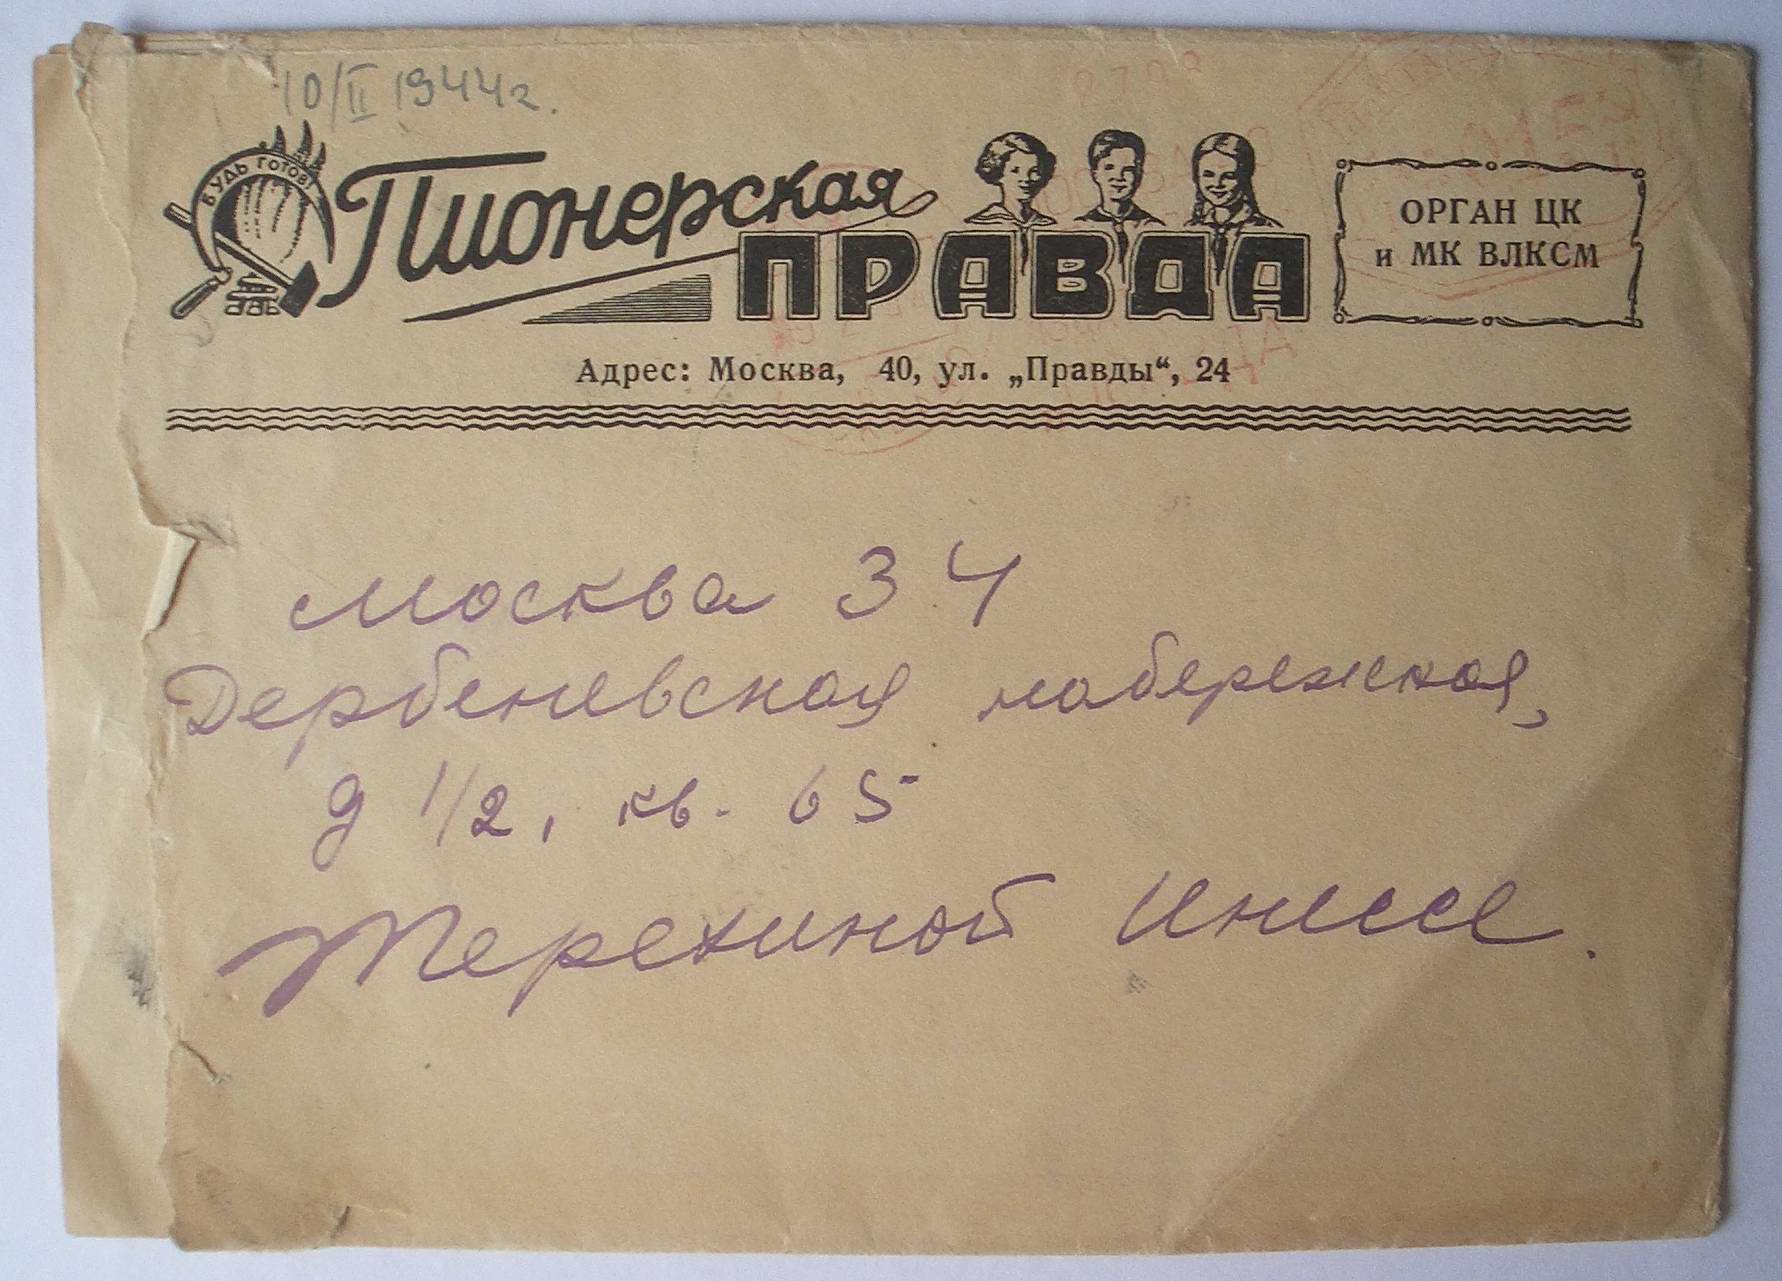 10/II 1944 г.
БУДЬ ГОТОВ!
Пионерская
ПРАВДА
ОРГАН ЦК
и МК ВЛКСМ
Адрес: Москва, 40, ул. „Правды“, 24
Москва 34
Дербеневская набережная,
д 1/2, кв. 65
Терехиной Инессе.